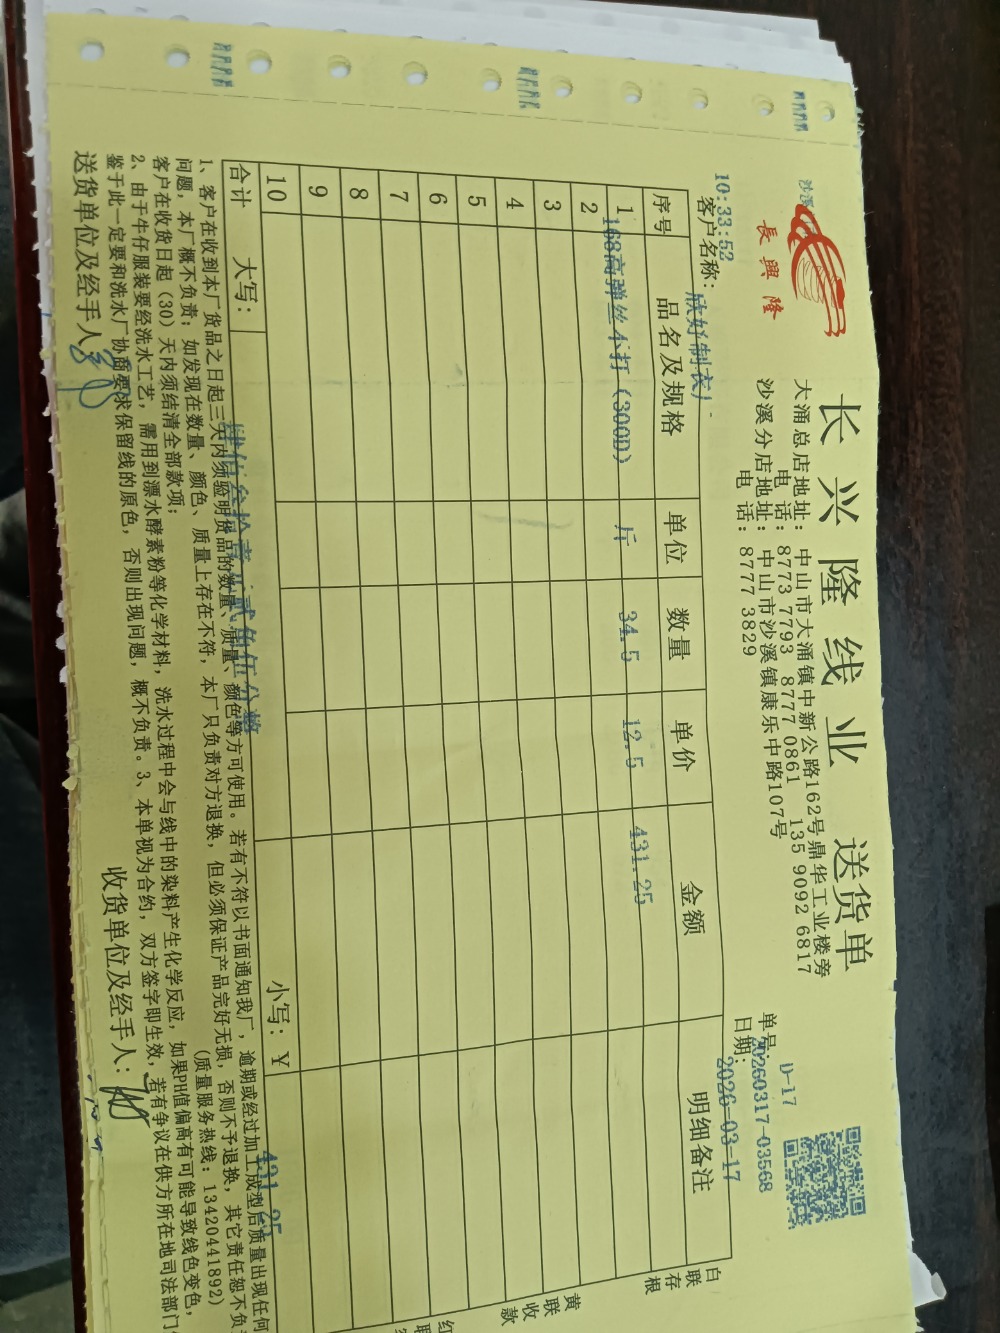 長興隆
长兴隆线业 送货单
大涌总店地址: 中山市大涌镇中新公路162号鼎华工业楼旁
电话: 8773 7793 8777 0861 135 9092 6817
沙溪分店地址: 中山市沙溪镇康乐中路107号
电话: 8777 3829
D-17
单号: 20260317-03568
日期: 2026-03-17
10:33:52
客户名称: 欣好制衣厂
序号 品名及规格 单位 数量 单价 金额 明细备注
1 168高弹丝 (300D) 斤 34.5 12.5 431.25
2
3
4
5
6
7
8
9
10
合计 大写: 肆佰叁拾壹元贰角伍分整 小写: ¥ 431.25
1、客户在收到本厂货品之日起三天内须验明货品的数量、质量、颜色等方可使用。若有不符以书面通知我厂,逾期或经过加工成型后质量出现任何
问题,本厂概不负责;如发现在数量、颜色、质量上存在不符,本厂只负责对方退换,但必须保证产品完好无损,否则不予退换,其它责任恕不负
客户在收货日起(30)天内须结清全部款项; (质量服务热线:13420441892)
2、由于牛仔服装要经洗水工艺,需用到漂水酵素粉等化学材料,洗水过程中会与线中的染料产生化学反应,如果PH值偏高有可能导致线色变色,
鉴于此一定要和洗水厂协商要求保留线的原色,否则出现问题,概不负责。3、本单视为合约,双方签字即生效,若有争议在供方所在地司法部门
送货单位及经手人: 收货单位及经手人:
白联存根
黄联收款
红联